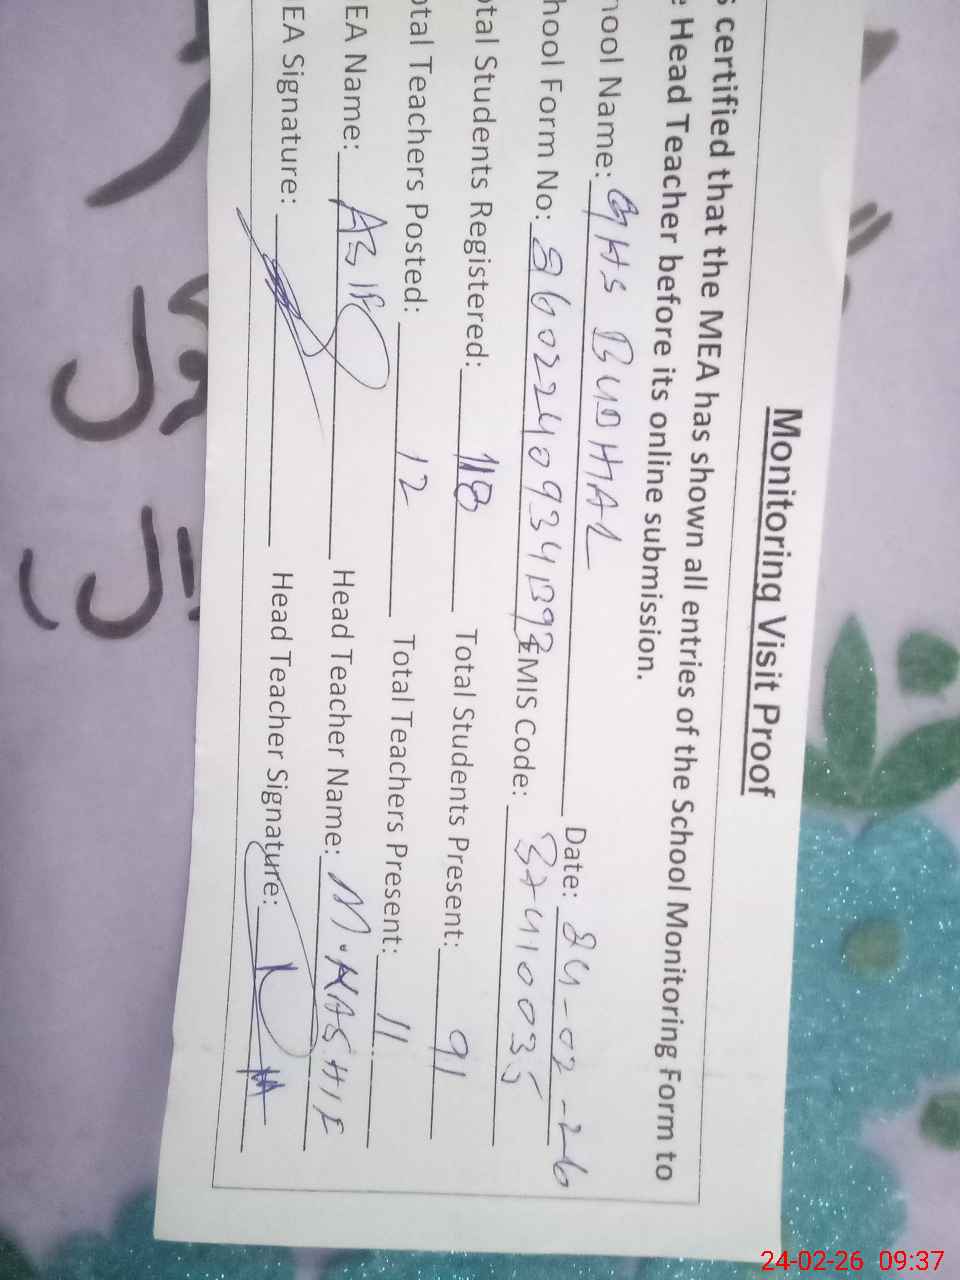 Monitoring Visit Proof
s certified that the MEA has shown all entries of the School Monitoring Form to
e Head Teacher before its online submission.
hool Name: GHS BUDHAL Date: 24-02-26
hool Form No: EMIS Code: 37410035
tal Students Registered: 118 Total Students Present: 91
otal Teachers Posted: 12 Total Teachers Present: 11
EA Name: ASIF Head Teacher Name: M.
EA Signature: Head Teacher Signature:
24-02-26 09:37